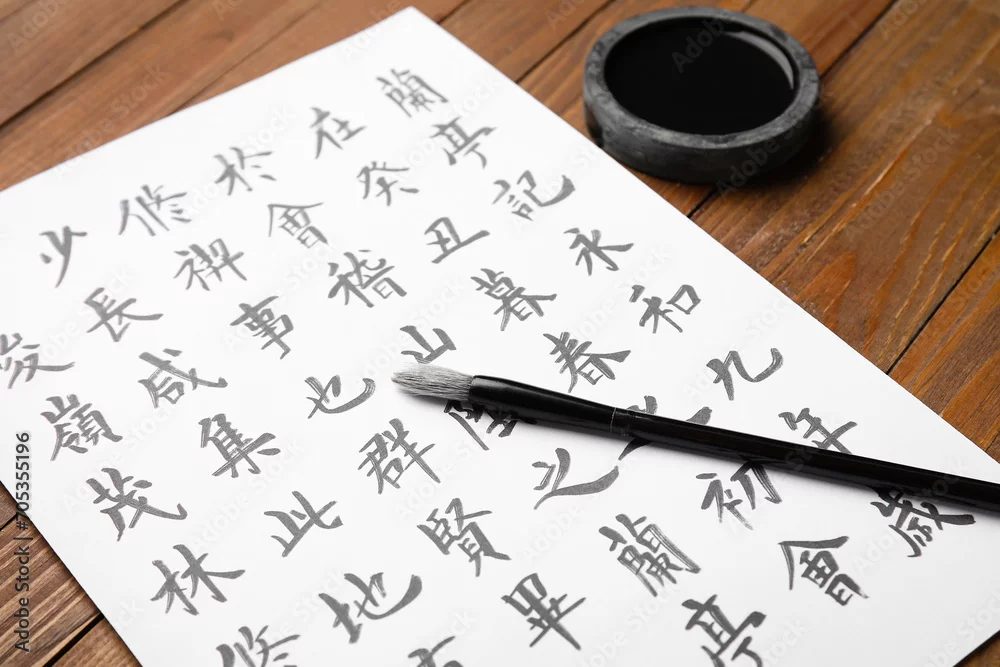 蘭亭記永和九年歲
在癸丑暮春之初會
於會稽山陰之蘭亭
修禊事也群賢畢
少長咸集此地有
峻嶺茂林修
Adobe Stock | #705355196